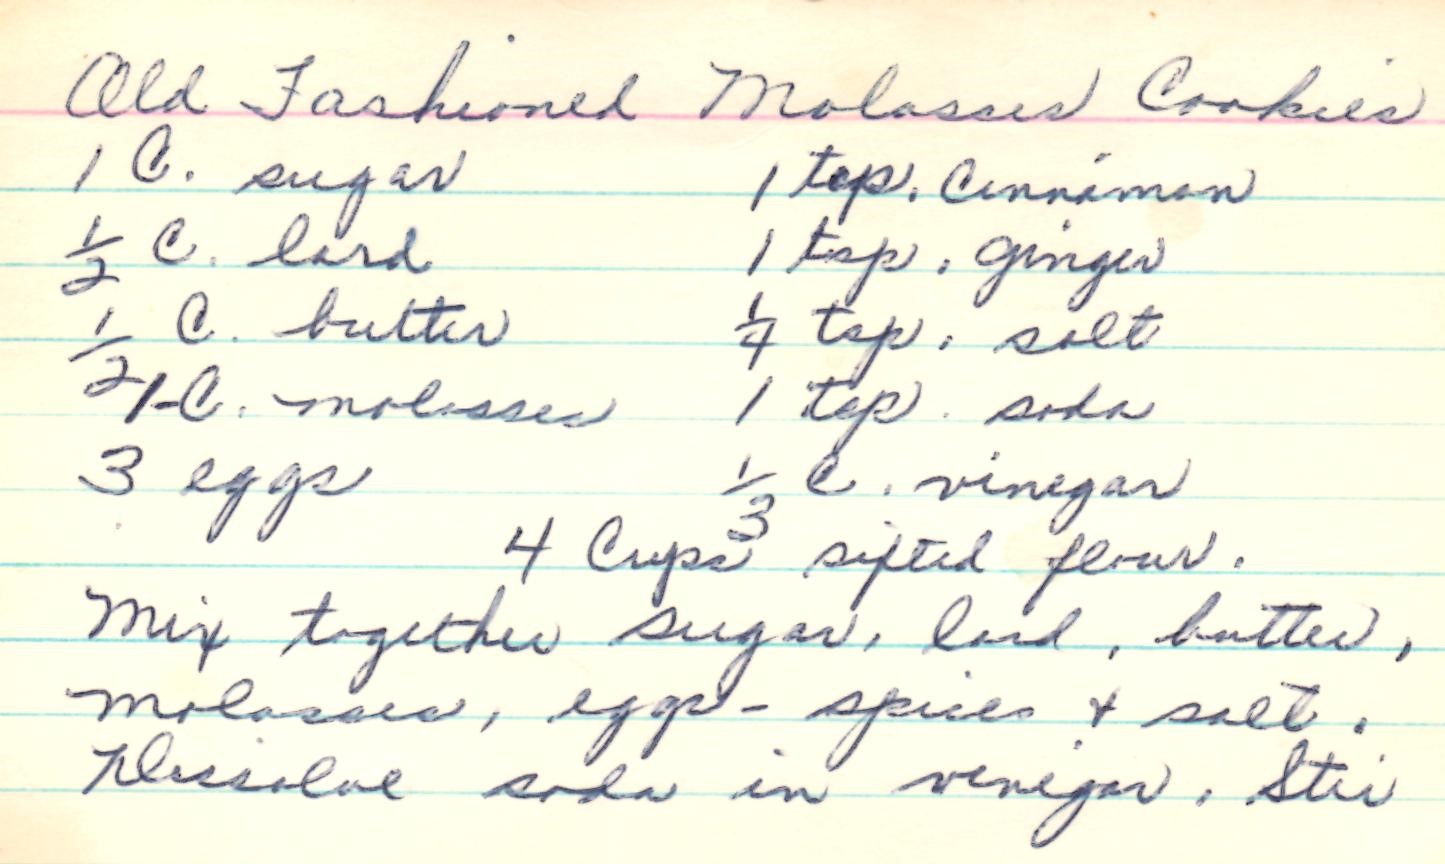 Old Fashioned Molasses Cookies
1 C. sugar 1 tsp. Cinnamon
1/2 C. lard 1 tsp. ginger
1/2 C. butter 1/4 tsp. salt
1 C. molasses 1 tsp. soda
3 eggs 1/3 C. vinegar
4 Cups sifted flour.
Mix together sugar, lard, butter,
molasses, eggs - spices & salt.
Dissolve soda in vinegar. Stir